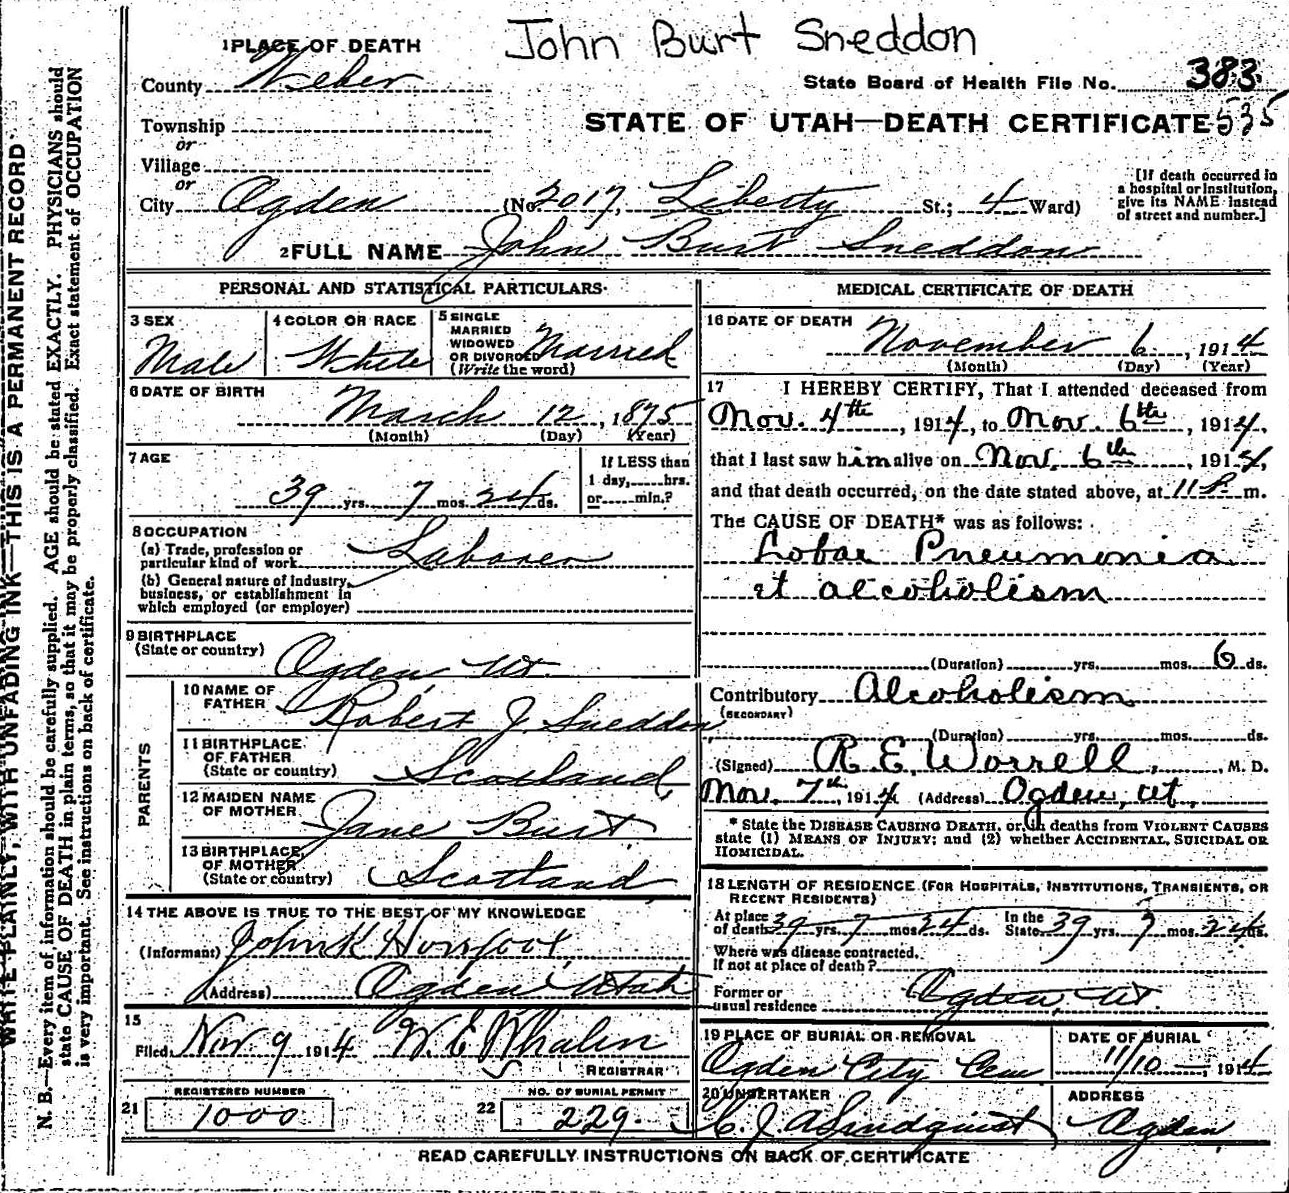 John Burt Sneddon
1 PLACE OF DEATH
County Weber
State Board of Health File No. 383
535
STATE OF UTAH—DEATH CERTIFICATE
Township
or
Village
or
City Ogden (No. 2017, Liberty St.; 4 Ward)
[If death occurred in
a hospital or institution,
give its NAME instead
of street and number.]
2 FULL NAME John Burt Sneddon
PERSONAL AND STATISTICAL PARTICULARS
3 SEX
Male
4 COLOR OR RACE
White
5 SINGLE
MARRIED
WIDOWED
OR DIVORCED Married
(Write the word)
6 DATE OF BIRTH
March 12, 1875
(Month) (Day) (Year)
7 AGE
39 yrs. 7 mos. 24 ds.
If LESS than
1 day, hrs.
or min.?
8 OCCUPATION
(a) Trade, profession or
particular kind of work Laborer
(b) General nature of industry,
business, or establishment in
which employed (or employer)
9 BIRTHPLACE
(State or country)
Ogden, Ut.
PARENTS
10 NAME OF
FATHER
Robert J. Sneddon
11 BIRTHPLACE
OF FATHER
(State or country) Scotland
12 MAIDEN NAME
OF MOTHER Jane Burt
13 BIRTHPLACE
OF MOTHER
(State or country) Scotland
14 THE ABOVE IS TRUE TO THE BEST OF MY KNOWLEDGE
(Informant) John K
(Address) Ogden Utah
15
Filed Nov 9 1914 W. E. Whalin
REGISTRAR
REGISTERED NUMBER
21 1000
NO. OF BURIAL PERMIT
22 229
MEDICAL CERTIFICATE OF DEATH
16 DATE OF DEATH
November 6, 1914
(Month) (Day) (Year)
17 I HEREBY CERTIFY, That I attended deceased from
Nov. 4th, 1914, to Nov. 6th, 1914,
that I last saw him alive on Nov. 6th, 1914,
and that death occurred, on the date stated above, at 11 P. m.
The CAUSE OF DEATH* was as follows:
Lobar Pneumonia
et alcoholism
(Duration) yrs. mos. 6 ds.
Contributory Alcoholism
(SECONDARY)
(Duration) yrs. mos. ds.
(Signed) R. E. Worrell, M. D.
Nov. 7th, 1914 (Address) Ogden, Ut.
* State the DISEASE CAUSING DEATH, or, in deaths from VIOLENT CAUSES
state (1) MEANS OF INJURY; and (2) whether ACCIDENTAL, SUICIDAL OR
HOMICIDAL.
18 LENGTH OF RESIDENCE (FOR HOSPITALS, INSTITUTIONS, TRANSIENTS, OR
RECENT RESIDENTS)
At place
of death 39 yrs. 7 mos. 24 ds. In the
State 39 yrs. 7 mos. 24 ds.
Where was disease contracted,
If not at place of death?
Former or
usual residence Ogden, Ut.
19 PLACE OF BURIAL OR REMOVAL
Ogden City Cem
DATE OF BURIAL
11/10, 1914
20 UNDERTAKER
C. J. A. Lindquist
ADDRESS
Ogden
READ CAREFULLY INSTRUCTIONS ON BACK OF CERTIFICATE
WRITE PLAINLY, WITH UNFADING INK—THIS IS A PERMANENT RECORD
N. B.—Every item of information should be carefully supplied. AGE should be stated EXACTLY. PHYSICIANS should
state CAUSE OF DEATH in plain terms, so that it may be properly classified. Exact statement of OCCUPATION
is very important. See instructions on back of certificate.